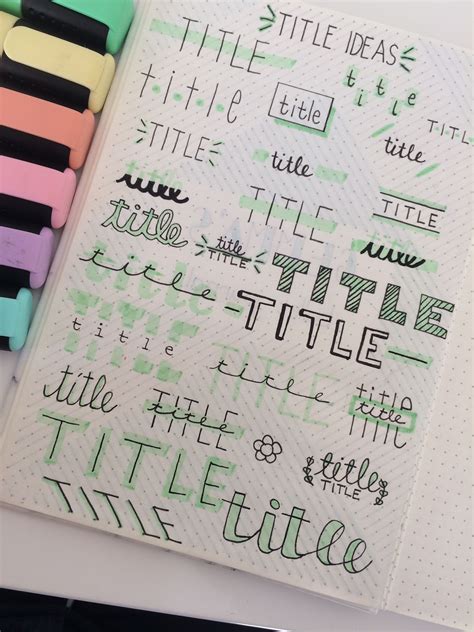 TITLE IDEAS
TITLE
title
title
title
title
TITLE
TITLE
title
TITLE
TITLE
title
title
title
title
TITLE
title
TITLE
title
TITLE
title
title
title
title
title
title
TITLE
title
TITLE
TITLE
title